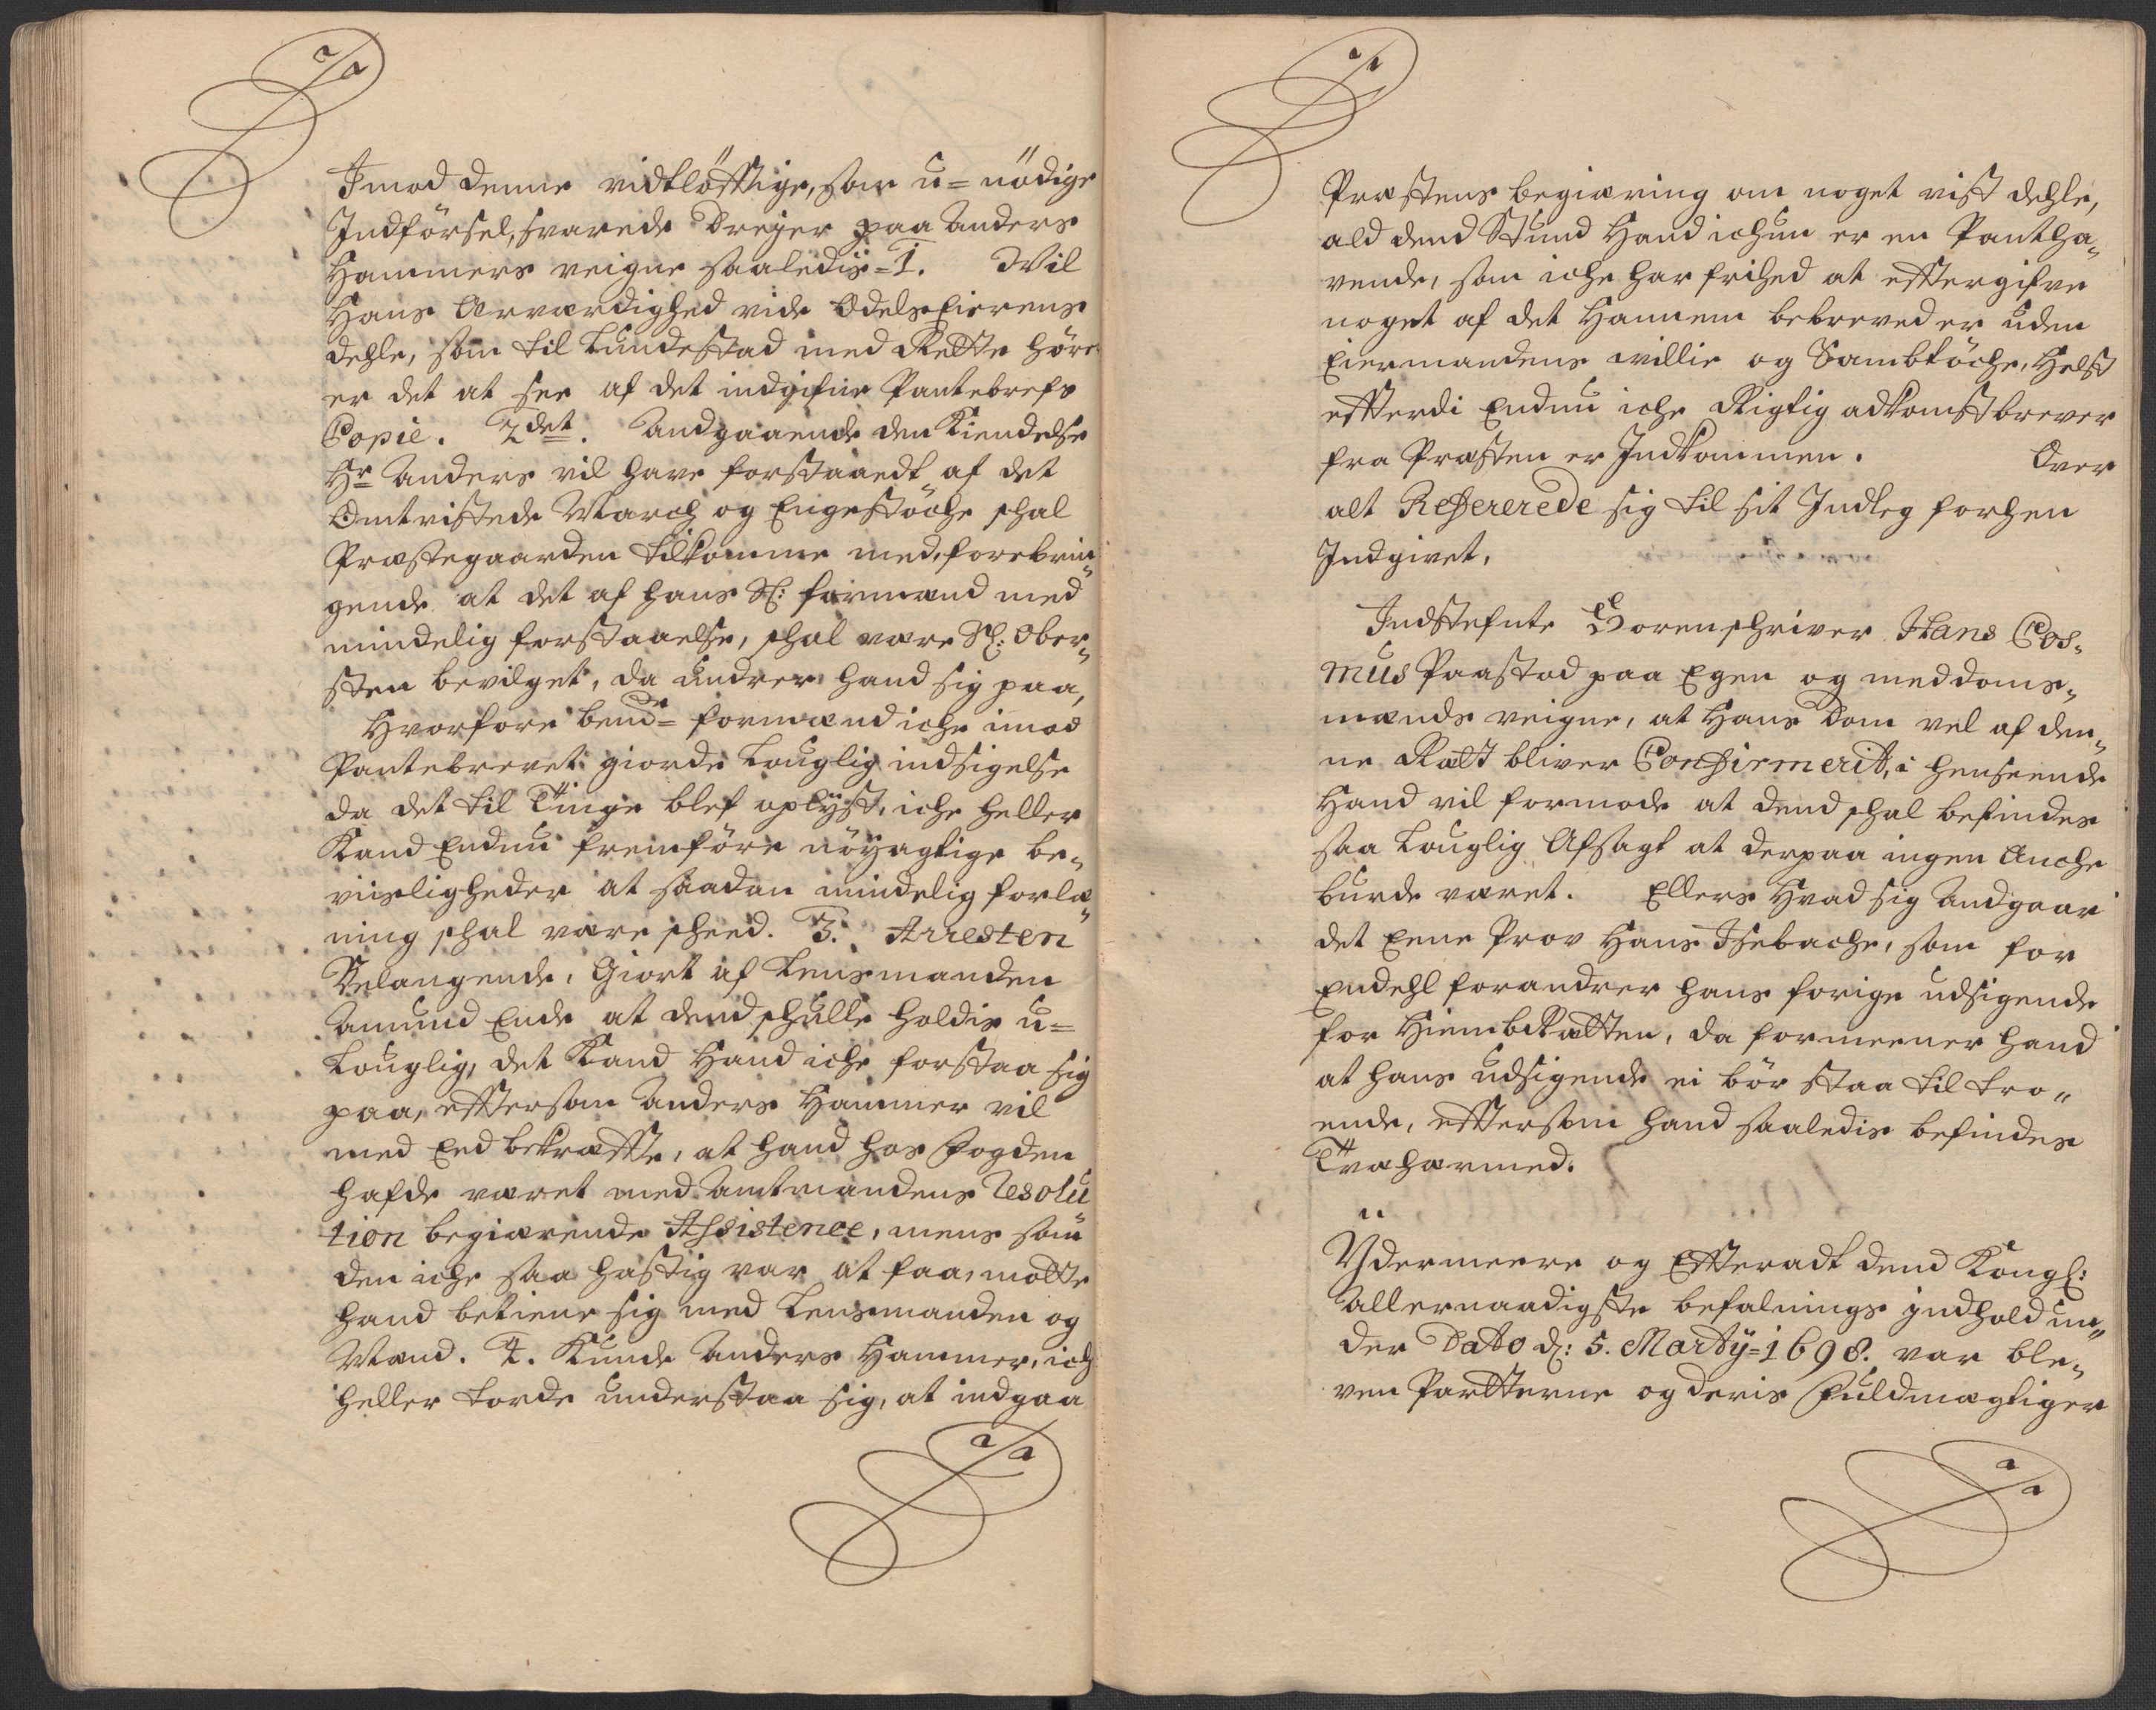 a/a
Imod denne vidtløfftige, som u= nödige
Indförsel, svarede Dreyer paa Anders
Hammers veigne saaledis = 1. Vil
Hans Ærværdighed vide Odels Eierens
dehle, som til Lundestad med Rette höre
er det at see af det indgifne Pantebrefs
Copie. 2det. Andgaaende den Kiendelse
Hr Anders vil have forstaaedt, af det
Omtvistede March og Engestöche schal
Præstegaarden tilkomme med, forebrin„
gende at det af hans Sl: formand med
mindelig forstaaelse, schal være Sl: Ober„
sten bevilget, da undrer hand sig paa,
Hvorfore bemde= formænd iche imod
Pantebrevet giorde Louglig indsigelse
da det til Tinge blef oplyst, iche heller
Kand Endnu fremföre nöyagtige be„
viisligheder at saadan mindelig forlæ„
ning schal være scheed. 3. Arresten
Belangende, Giort af Lensmanden
Amund Ende at dend schulle holdis u=
Louglig, det Kand Hand iche forstaa sig
paa, eftersom Anders Hammer vil
med Eed bekræffte, at hand hos Fogden
hafde været med Amtmandens Resolu„
tion begiærende Assistence, mens som
den iche saa hastig var at faa, motte
hand betiene sig med Lensmanden og
Mænd. 4. Kunde Anders Hammer, ich
heller torde understaa sig, at indgaa
a/a
a/a
Præstens begiæring om noget vist dehle,
ald dend Stund Hand ichun er en Pantha„
vende, som iche har frihed at efftergifve
noget af det Hannem bebreved er uden
Eiermandens willie og Sambtöche, Helst
efterdi Endnu iche Rigtig adkomstbrever
fra Præsten er Indkommen. Over
alt Refererede sig til sit Indleg forhen
Indgivet,
Indstefnte Sorenschriver Hans Cos„
mus Paastod paa Egen og meddoms„
mænds veigne, at Hans Dom vel af den„
ne Rætt bliver Confirmerit, i henseende
Hand vil formode at dend schal befindes
saa Louglig Afsagt at derpaa ingen Anche
burde været. Ellers Hvad sig Andgaar
det Eene Prov Hans Isebache, som for
Endehl forandrer hans forige udsigende
for HiembRætten, da formeener hand
at hans udsigende ei bör staa til tro„
ende, eftersom hand saaledis befindes
Tvæhærmed.
Ydermeere og Efteradt dend Kongl:
Allernaadigste befalnings indhold un„
der Dato d: 5. Marty = 1698. var ble„
ven Partterne og deris Fuldmægtiger
a/a